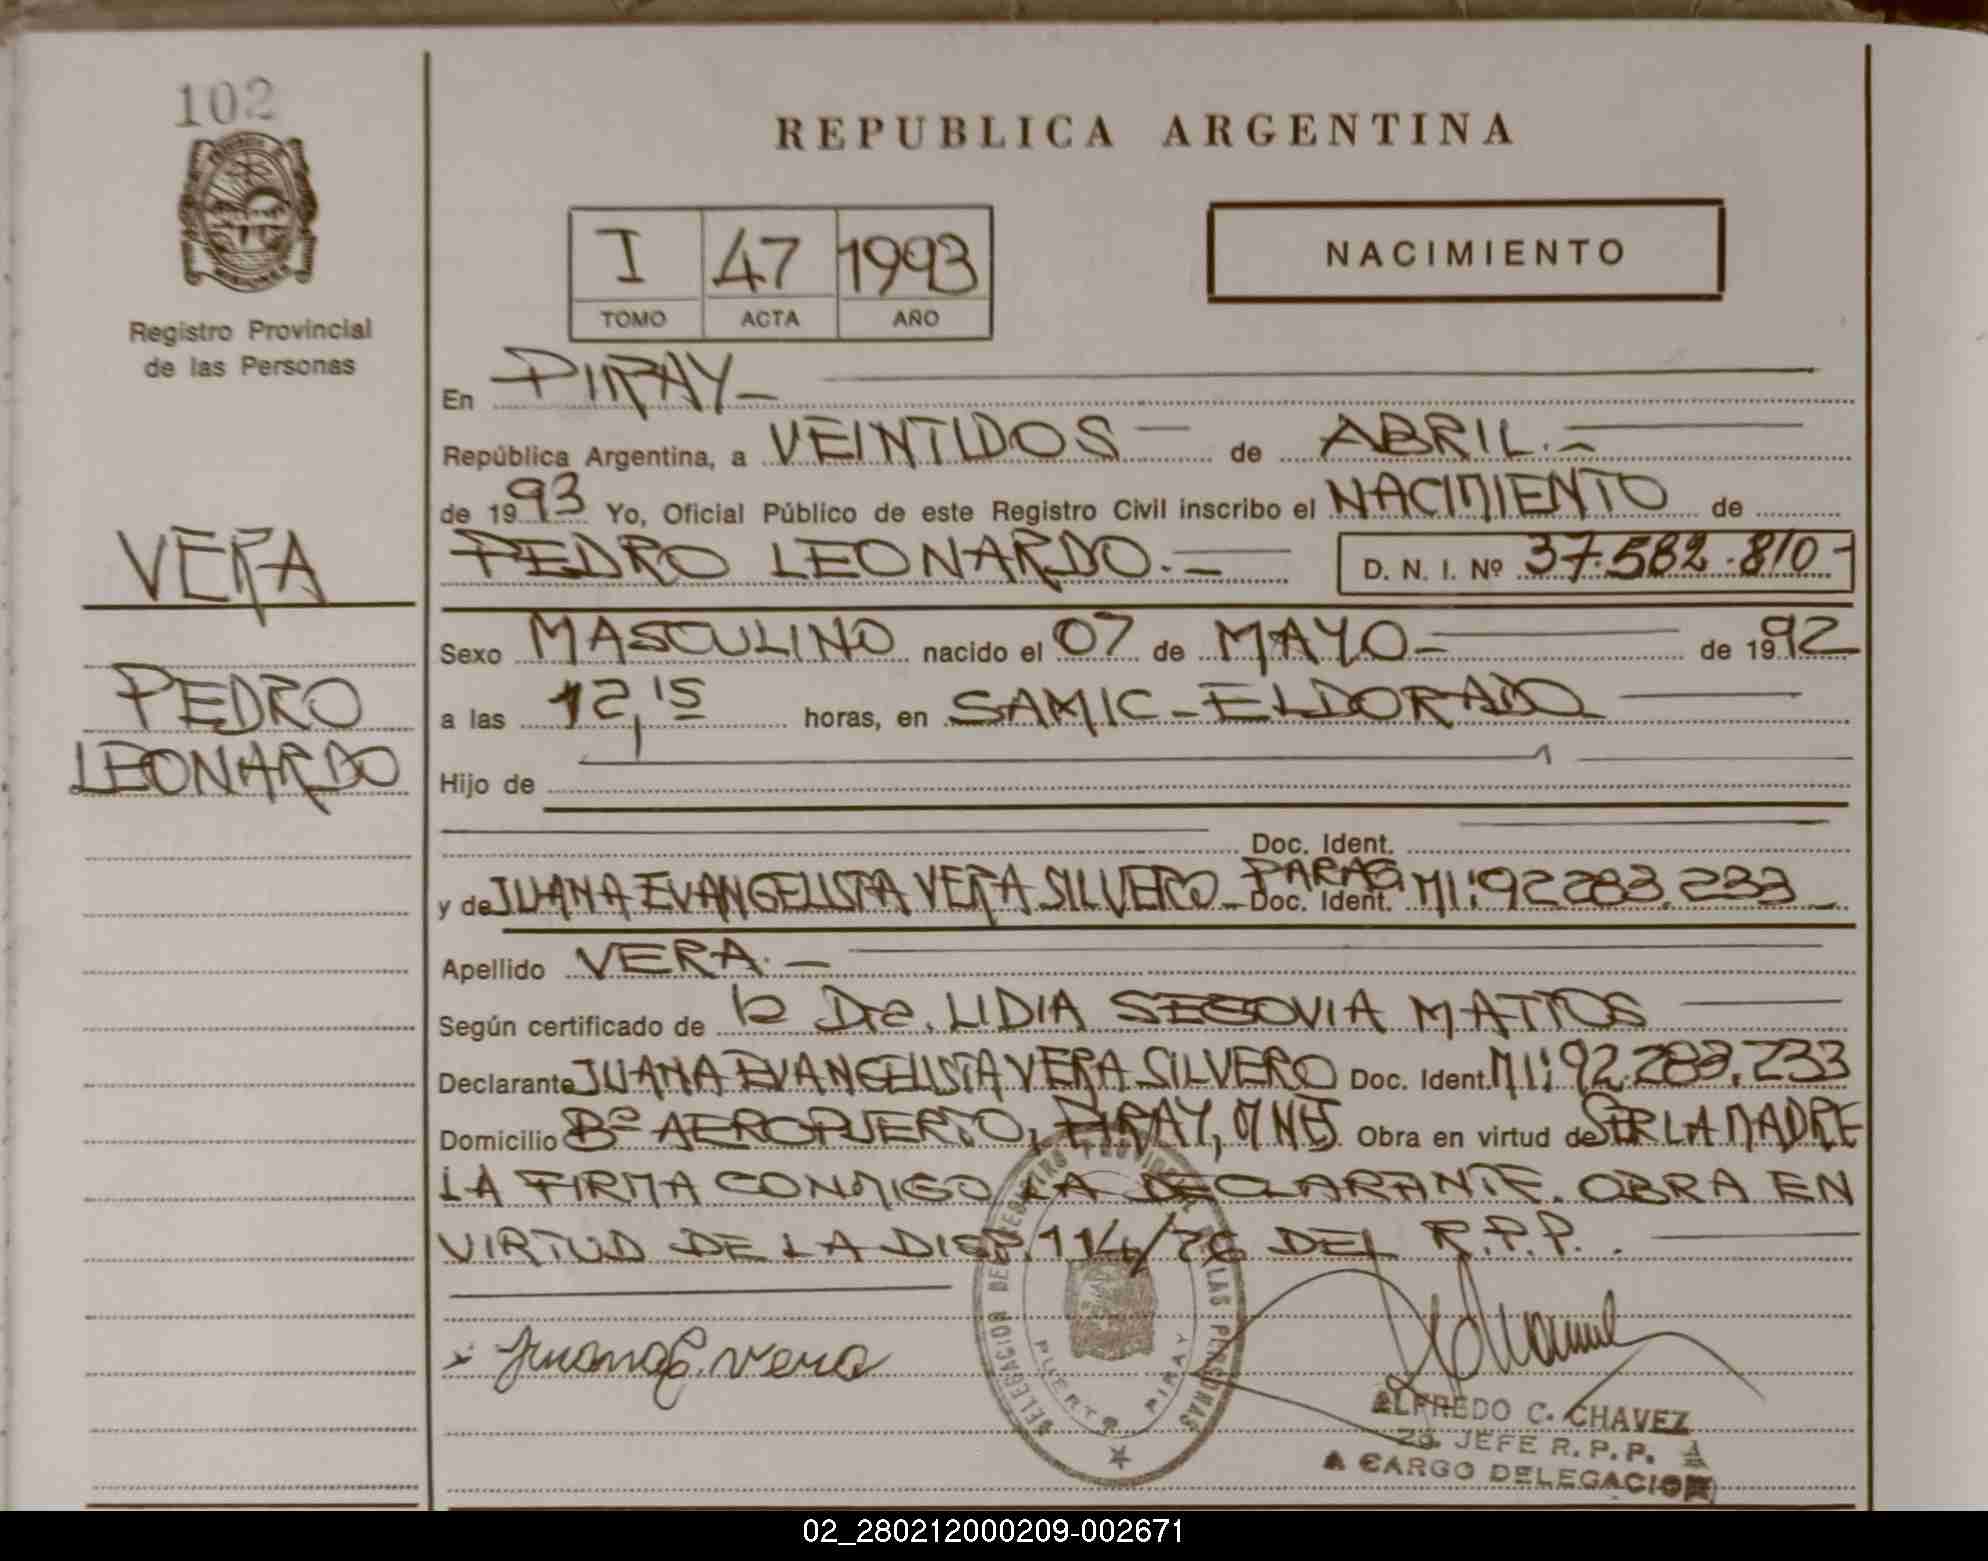 102
Registro Provincial
de las Personas
VERA
PEDRO
LEONARDO
REPUBLICA ARGENTINA
I 47 1993
TOMO ACTA AÑO
NACIMIENTO
En PIRAY-
República Argentina, a VEINTIDOS de ABRIL.-
de 1993 Yo, Oficial Público de este Registro Civil inscribo el NACIMIENTO de
PEDRO LEONARDO.- D. N. I. Nº 37.582.810-
Sexo MASCULINO nacido el 07 de MAYO- de 1992
a las 12,15 horas, en SAMIC-ELDORADO
Hijo de
Doc. Ident.
y de JUANA EVANGELISTA VERA SILVERO- PARAG Doc. Ident. MI:92283.233-
Apellido VERA.-
Según certificado de la Dra. LIDIA SEGOVIA MATTOS
Declarante JUANA EVANGELISTA VERA SILVERO Doc. Ident. MI:92.283.233
Domicilio Bº AEROPUERTO, PIRAY, MNES Obra en virtud de SER LA MADRE
LA FIRMA CONMIGO LA DECLARANTE. OBRA EN
VIRTUD DE LA DISP. 114/76 DEL R.P.P..
x Juana E. Vera
DELEGACION DEL REGISTRO PROVINCIAL DE LAS PERSONAS
PUERTO PIRAY
ALFREDO C. CHAVEZ
2o. JEFE R.P.P.
A CARGO DELEGACION
02_280212000209-002671